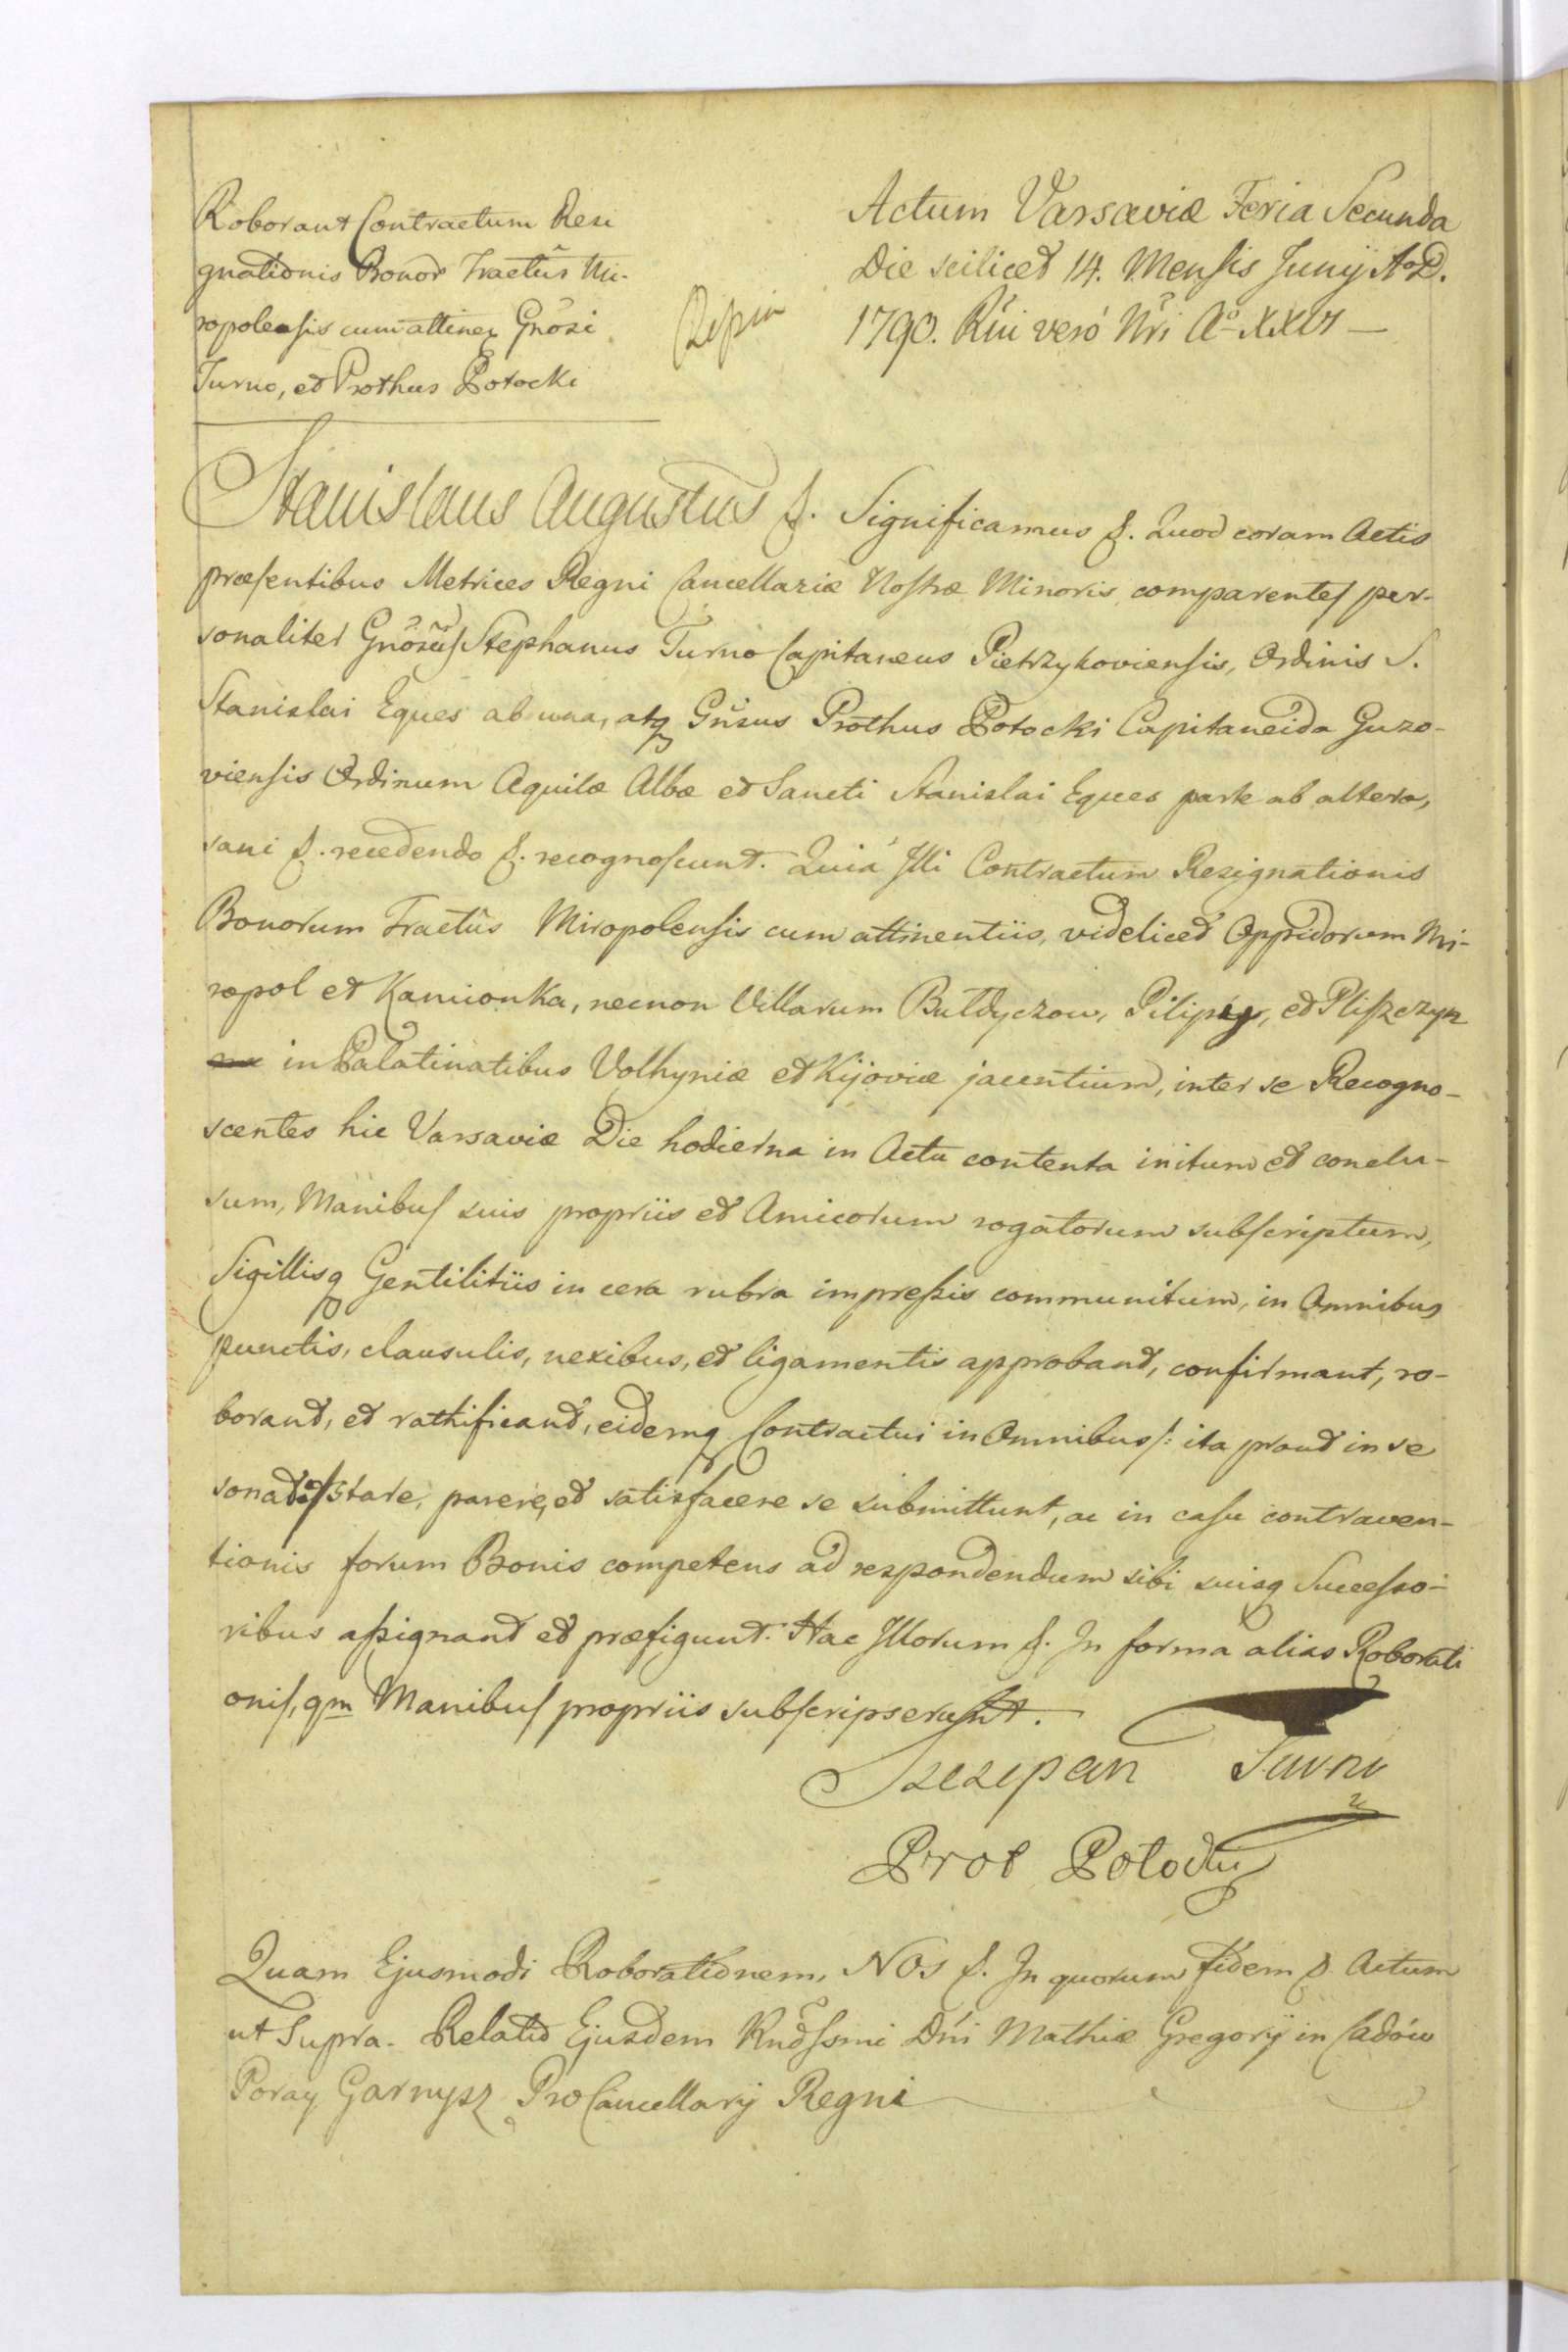 Roborant Contractum Resi
gnationis Bonor Tractûs Mi-
ropolensis cum attinen Gnosi
Turno, et Prothus Potocki
Actum Varsaviæ Feria Secunda
Die scilicet 14. Mensis Junÿ A° D.
1790. Rñi verò Nri A° XXVI —
Stanislaus Augustus &. Significamus &. Quod coram Actis
præsentibus Metrices Regni Cancellariæ Nostræ Minoris, comparentes per-
sonaliter Gnosus Stephanus Turno Capitaneus Pietrzykoviensis, Ordinis S.
Stanislai Eques ab una, atq Gnsus Prothus Potocki Capitaneida Guzo-
viensis Ordinum Aquilæ Albæ et Sancti Stanislai Eques parte ab altera,
sani &. recedendo &. recognoscunt. Quià Illi Contractum Resignationis
Bonorum Tractûs Miropolensis cum attinentiis, videlicet Oppidorum Mi-
ropol et Kamionka, necnon Villarum Bułdyczow, Pilipy, et Pliszczyn
in Palatinatibus Volhyniæ et Kijoviæ jacentium, inter se Recogno-
scentes hic Varsaviæ Die hodierna in Actu contenta initum et conclu-
sum, Manibus suis propriis et Amicorum rogatorum subscriptum,
Sigillisq Gentilitiis in cera rubra impressis communitum, in Omnibus
punctis, clausulis, nexibus, et ligamentis approbant, confirmant, ro-
borant, et rathificant, eidemq Contractui in Omnibus /: ita prout in se
sonat :/ stare, parere, et satisfacere se submittunt, ac in casu contraven-
tionis forum Bonis competens ad respondendum sibi suisq Successo-
ribus assignant et præfigunt. Hac Illorum &. In forma alias Roborati
onis, qm Manibus propriis subscripserunt.
Szczepan Turno
Prot Potocki
Quam Ejusmodi Roborationem, NOS &. In quorum fidem &. Actum
ut Supra. Relatio Ejusdem Rndssmi Dni Mathiæ Gregorÿ in Cadów
Poray Garnysz ProCancellarÿ Regni